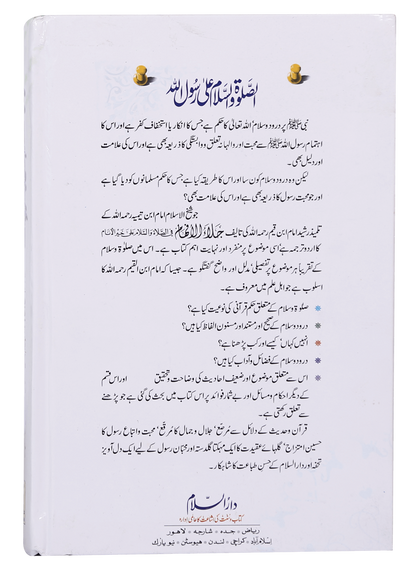 الصلوٰۃ والسلام علیٰ رسول اللہ
نبی ﷺ پر درود و سلام اللہ تعالیٰ کا حکم ہے جس کا انکار یا استخفاف کفر ہے اور اس کا
اہتمام رسول اللہ ﷺ سے محبت اور والہانہ تعلق و وابستگی کا ذریعہ بھی ہے اور اس کی علامت
اور دلیل بھی۔
لیکن وہ درود و سلام کون سا اور اس کا طریقہ کیا ہے جس کا حکم مسلمانوں کو دیا گیا ہے
اور جو محبت رسول کا ذریعہ بھی ہے اور اس کی علامت بھی؟
جو شیخ الاسلام امام ابن تیمیہ رحمہ اللہ کے
تلمیذ رشید امام ابن قیم رحمہ اللہ کی تالیف جلاء الافہام فی الصلاۃ والسلام علی خیر الانام
کا اردو ترجمہ ہے اسی موضوع پر منفرد اور نہایت اہم کتاب ہے۔ اس میں صلوٰۃ و سلام
کے تقریباً ہر موضوع پر تفصیلی‘ مدلل اور واضح گفتگو ہے۔ جیسا کہ امام ابن القیم رحمہ اللہ کا
اسلوب ہے جو اہل علم میں معروف ہے۔
صلوٰۃ و سلام کے متعلق حکم قرآنی کی نوعیت کیا ہے؟
درود و سلام کے صحیح اور مستند اور مسنون الفاظ کیا ہیں؟
انہیں کہاں‘ کیسے اور کب پڑھنا ہے؟
درود و سلام کے فضائل و آداب کیا ہیں؟
اس سے متعلق موضوع اور ضعیف احادیث کی وضاحت و تحقیق اور اس قسم
کے دیگر احکام و مسائل اور بے شمار فوائد پر اس کتاب میں بحث کی گئی ہے جو پڑھنے
سے تعلق رکھتی ہے۔
قرآن و حدیث کے دلائل سے مرصع‘ جلال و جمال کا مرقع‘ محبت و اتباع رسول کا
حسین امتزاج‘ گلہائے عقیدت کا ایک مہکتا گلدستہ اور محبان رسول کے لیے ایک دل آویز
تحفہ اور دارالسلام کے حسن طباعت کا شاہکار۔
دارالسلام
کتاب و سنت کی اشاعت کا عالمی ادارہ
ریاض ٭ جدہ ٭ شارجہ ٭ لاہور
اسلام آباد ٭ کراچی ٭ لندن ٭ ہیوسٹن ٭ نیو یارک